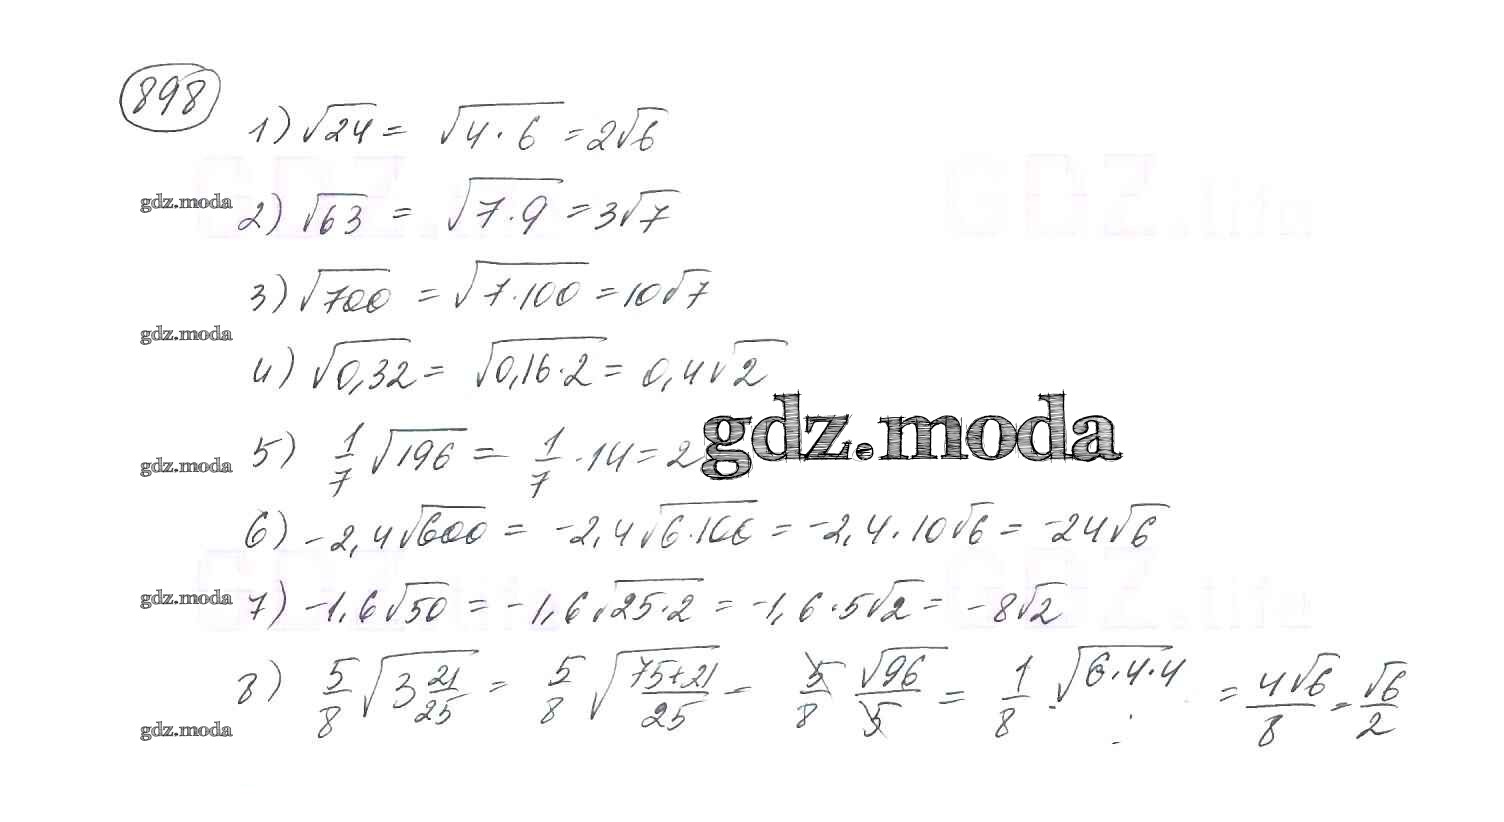 898
1) √24 = √4·6 = 2√6
gdz.moda
2) √63 = √7·9 = 3√7
3) √700 = √7·100 = 10√7
gdz.moda
4) √0,32 = √0,16·2 = 0,4√2
gdz.moda
5) 1/7 √196 = 1/7 · 14 = 2
gdz.moda
6) -2,4√600 = -2,4√6·100 = -2,4·10√6 = -24√6
gdz.moda
7) -1,6√50 = -1,6√25·2 = -1,6·5√2 = -8√2
8) 5/8 √3 21/25 = 5/8 √75+21/25 = 5/8 √96/5 = 1/8 · √6·4·4 = 4√6/8 = √6/2
gdz.moda